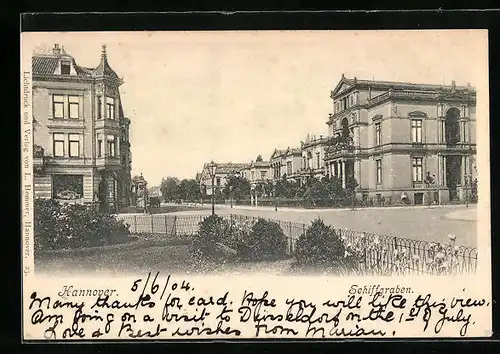 Lichtdruck und Verlag von L. Hemmer, Hannover. 25
Hannover.
5/6/04.
Schiffgraben.
Many thanks for card. Hope you will like this view.
I am going on a visit to Düsseldorf on the 1st of July.
Love & Best wishes from Marian.